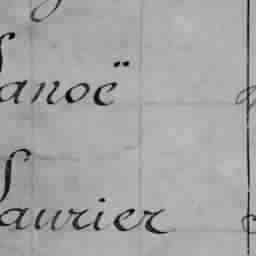 Lanoë
Laurier